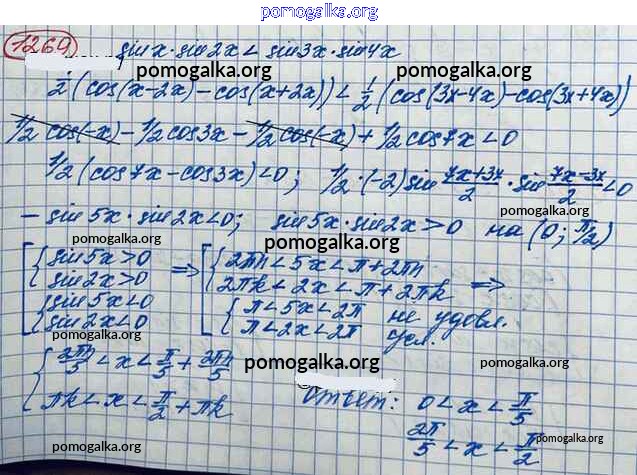 pomogalka.org
1269 sin x · sin 2x < sin 3x · sin 4x
pomogalka.org pomogalka.org
1/2 (cos(x-2x) - cos(x+2x)) < 1/2 (cos(3x-4x) - cos(3x+4x))
1/2 cos(-x) - 1/2 cos 3x - 1/2 cos(-x) + 1/2 cos 7x < 0
pomogalka.org pomogalka.org
1/2 (cos 7x - cos 3x) < 0; 1/2 · (-2) sin (7x+3x)/2 · sin (7x-3x)/2 < 0
- sin 5x · sin 2x < 0; sin 5x · sin 2x > 0 на (0; π/2)
pomogalka.org pomogalka.org pomogalka.org
[ { sin 5x > 0 => [ { 2πn < 5x < π + 2πn
sin 2x > 0 2πk < 2x < π + 2πk =>
{ sin 5x < 0 { π < 5x < 2π не удовл.
sin 2x < 0 π < 2x < 2π усл.
pomogalka.org pomogalka.org pomogalka.org
{ 2πn/5 < x < π/5 + 2πn/5
pomogalka.org
πk < x < π/2 + πk Ответ: 0 < x < π/5
2π/5 < x < π/2
pomogalka.org pomogalka.org pomogalka.org